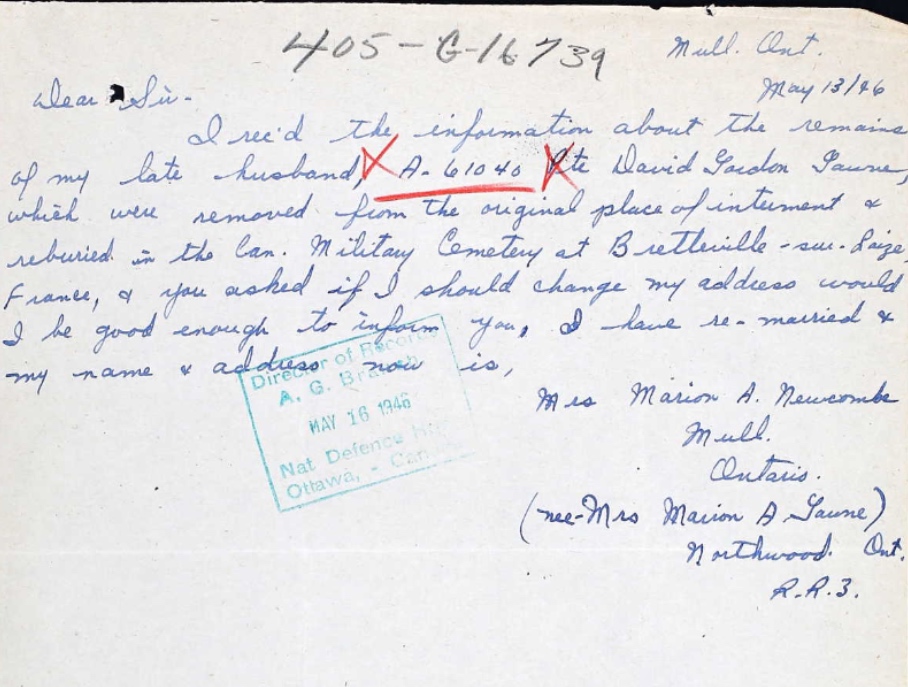 405-G-16739
Mull. Ont.
May 13/46
Dear Sir-
I rec'd the information about the remains
of my late husband, A-61040 Pte David Gordon Gawne,
which were removed from the original place of interment &
reburied in the Can. Military Cemetery at Bretteville-sur-Laize,
France, & you asked if I should change my address would
I be good enough to inform you, I have re-married &
my name & address now is,
Director of Records
A. G. Branch
MAY 16 1946
Nat Defence
Ottawa, - Can
Mrs Marion A. Newcombe
Mull.
Ontario.
(nee-Mrs Marion A Gawne)
Northwood. Ont.
R.R.3.